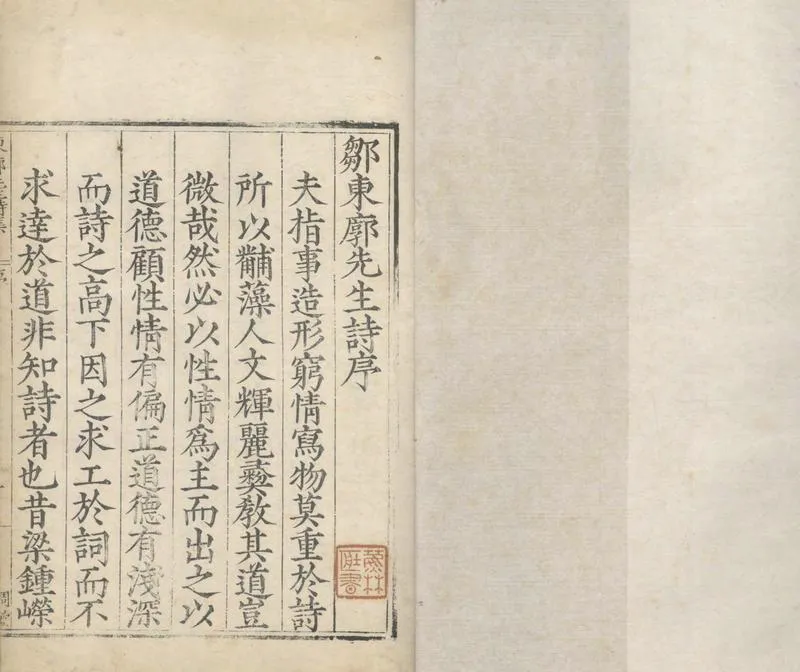 鄒東廓先生詩序
夫指事造形窮情寫物莫重於詩
所以黼藻人文輝麗彝敎其道豈
微哉然必以性情爲主而出之以
道德顧性情有偏正道德有淺深
而詩之高下因之求工於詞而不
求達於道非知詩者也昔梁鍾嶸